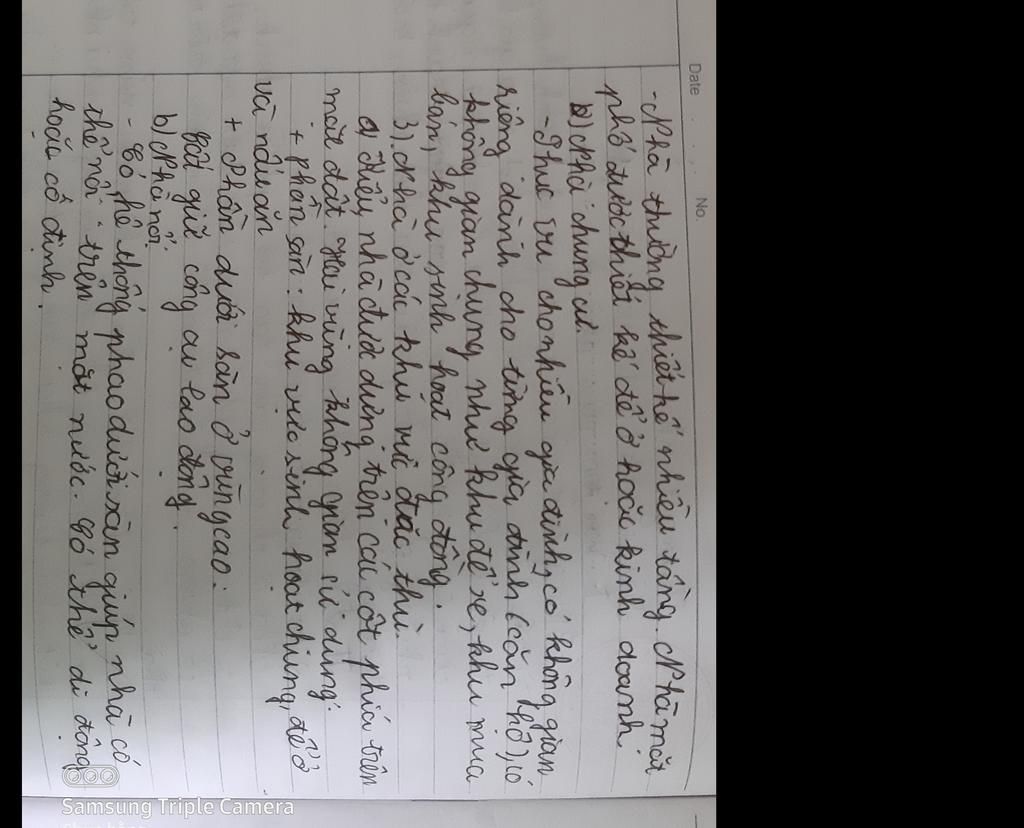 Date No.
- Nhà thường thiết kế nhiều tầng. Nhà mặt
phố được thiết kế để ở hoặc kinh doanh
b) Nhà chung cư.
- Phục vụ cho nhiều gia đình, có không gian
riêng dành cho từng gia đình (căn hộ), có
không gian chung như khu để xe, khu mua
bán, khu sinh hoạt công đồng.
3). Nhà ở các khu vực đặc thù.
a) Kiểu nhà được dựng trên các cột phía trên
mặt đất. Hai vùng không gian sử dụng:
+ phần sàn: khu vực sinh hoạt chung, để ở
và nấu ăn
+ Phần dưới sàn ở vùng cao:
cất giữ công cụ lao động.
b) Nhà nổi.
- Có hệ thống phao dưới sàn giúp nhà có
thể nổi trên mặt nước. Có thể di động
hoặc cố định.
Samsung Triple Camera